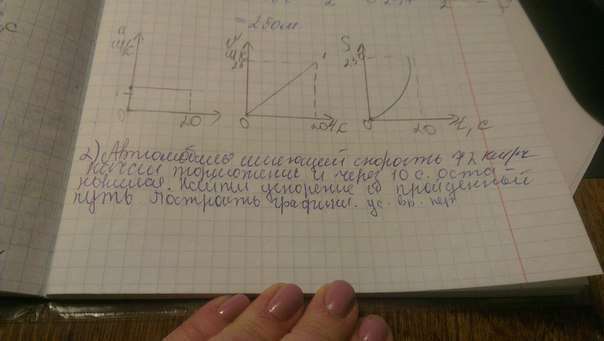 = 250м.
a
м/с²
0
20
V
м/с
25
0
20 t, c
S
25
0
20
t, c
2) Автомобиль имеющей скорость 72 км/ч
начал торможение и через 10 с. оста
новился. Найти ускорение и пройденный
путь Построить графики. ус. вр. пер